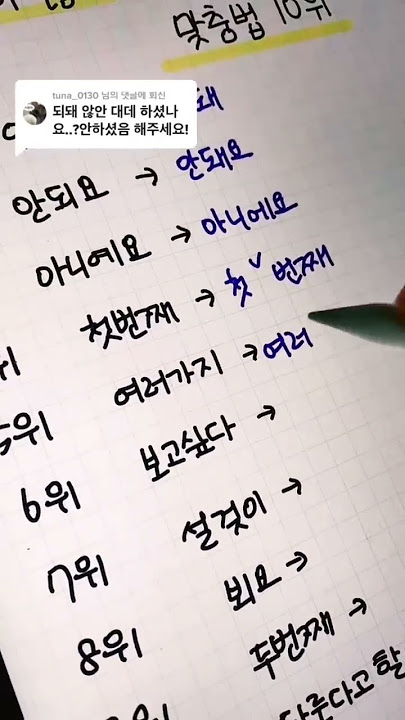 맞춤법 10위
tuna_0130 님의 댓글에 회신
되돼 않안 대데 하셨나
요..?안하셨음 해주세요!
돼
안되요 → 안돼요
아니예요 → 아니에요
첫번째 → 첫 번째
5위 여러가지 → 여러
6위 보고싶다 →
7위 설겆이 →
8위 뵈요 →
두번째 →
다고 할